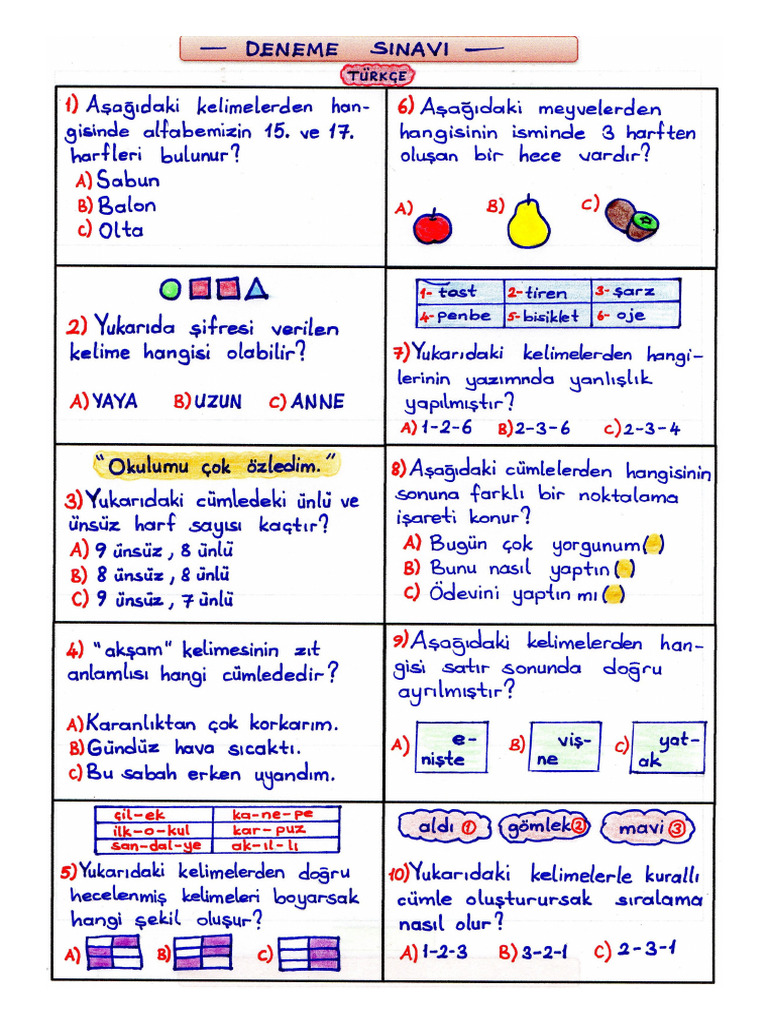 — DENEME SINAVI —
TÜRKÇE
1) Aşağıdaki kelimelerden han-
gisinde alfabemizin 15. ve 17.
harfleri bulunur?
A) Sabun
B) Balon
C) Olta
2) Yukarıda şifresi verilen
kelime hangisi olabilir?
A) YAYA B) UZUN C) ANNE
"Okulumu çok özledim."
3) Yukarıdaki cümledeki ünlü ve
ünsüz harf sayısı kaçtır?
A) 9 ünsüz, 8 ünlü
B) 8 ünsüz, 8 ünlü
C) 9 ünsüz, 7 ünlü
4) "akşam" kelimesinin zıt
anlamlısı hangi cümlededir?
A) Karanlıktan çok korkarım.
B) Gündüz hava sıcaktı.
C) Bu sabah erken uyandım.
çil-ek ka-ne-pe
ilk-o-kul kar-puz
san-dal-ye ak-ıl-lı
5) Yukarıdaki kelimelerden doğru
hecelenmiş kelimeleri boyarsak
hangi şekil oluşur?
A) B) C)
6) Aşağıdaki meyvelerden
hangisinin isminde 3 harften
oluşan bir hece vardır?
A) B) C)
1- tost 2- tiren 3- şarz
4- penbe 5- bisiklet 6- oje
7) Yukarıdaki kelimelerden hangi-
lerinin yazımnda yanlışlık
yapılmıştır?
A) 1-2-6 B) 2-3-6 C) 2-3-4
8) Aşağıdaki cümlelerden hangisinin
sonuna farklı bir noktalama
işareti konur?
A) Bugün çok yorgunum( )
B) Bunu nasıl yaptın( )
C) Ödevini yaptın mı( )
9) Aşağıdaki kelimelerden han-
gisi satır sonunda doğru
ayrılmıştır?
A) e- B) viş- C) yat-
nişte ne ak
aldı 1 gömlek 2 mavi 3
10) Yukarıdaki kelimelerle kurallı
cümle oluşturursak sıralama
nasıl olur?
A) 1-2-3 B) 3-2-1 C) 2-3-1